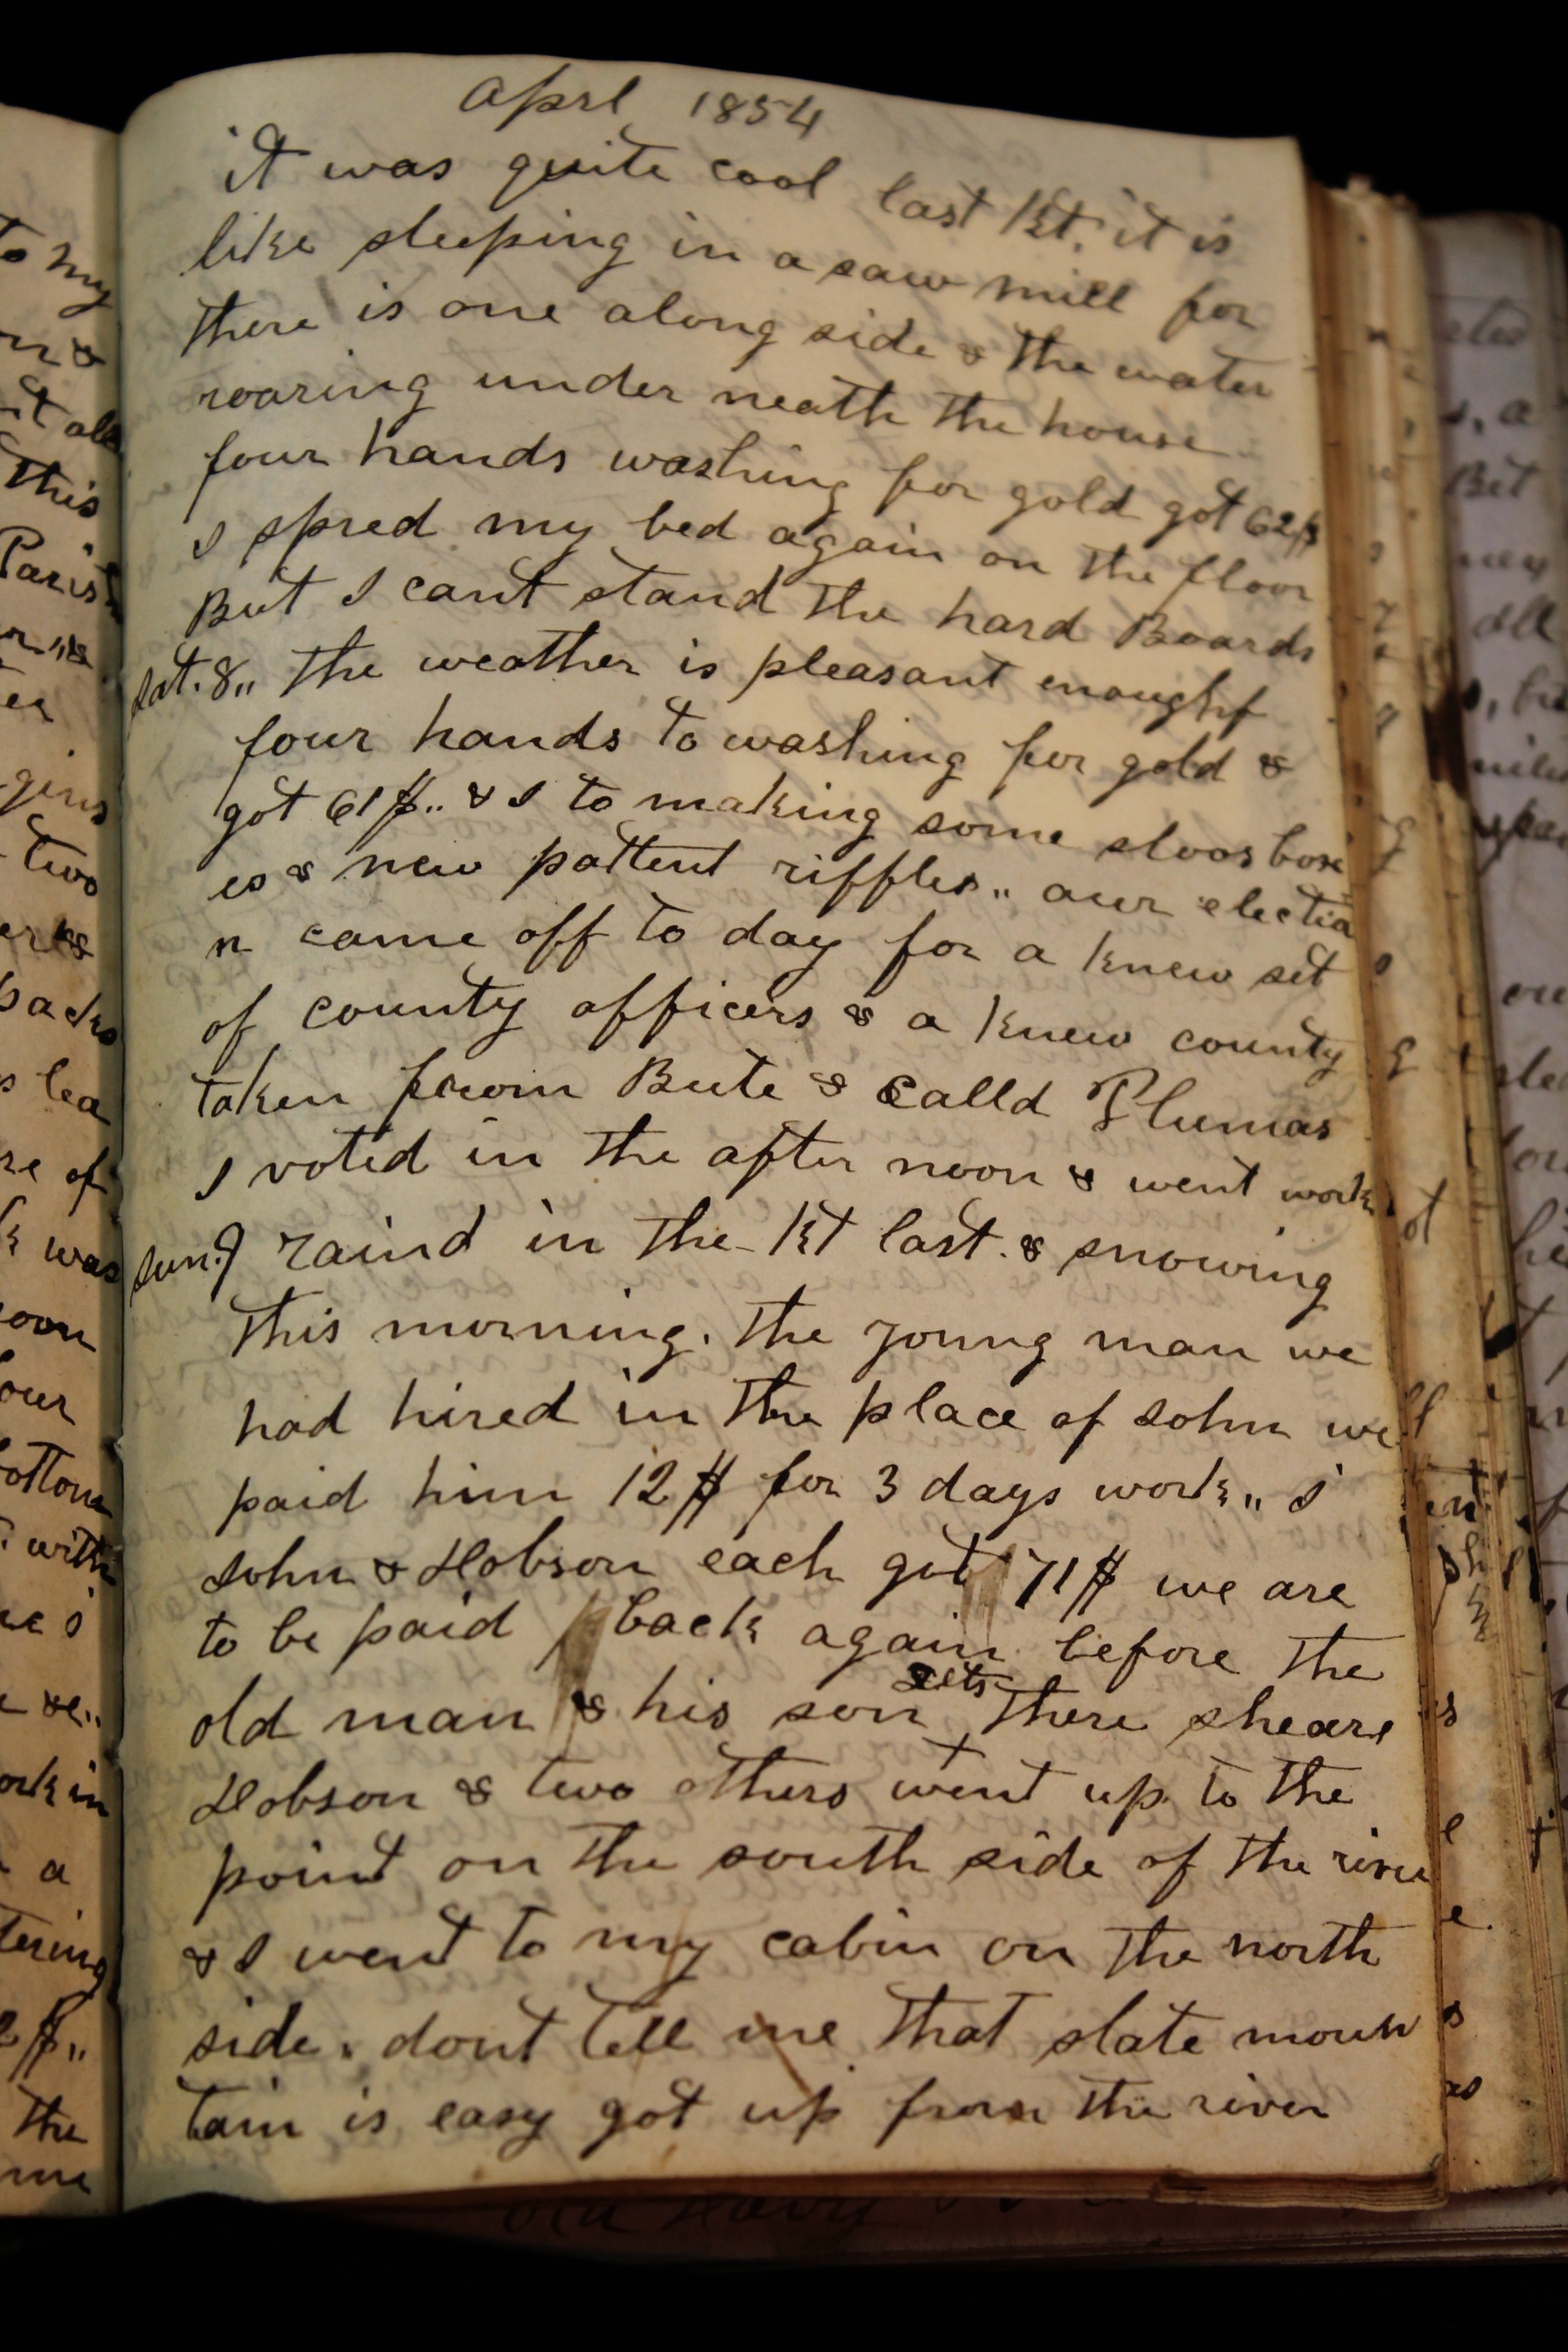 to my
& 
it all
this
Paris
gins
two
backs
lea
of
was
noon
our
bottom
with
I
ork in
a
tering
the
me
Aprl 1854
it was quite cool last kt, it is
like sleeping in a saw mill for
there is one along side & the water
roaring under neath the house
four hands washing for gold got 62$
I spred my bed again on the floor
But I cant stand the hard Boards
Sat. 8,, the weather is pleasant enough
four hands to washing for gold &
got 61$,, & I to making some sloos boxe
es & new pattent riffles,, our electio
n came off to day for a knew set
of county officers & a knew county
taken from Bute & calld Plumas
I voted in the after noon & went work
Sun. 9 raind in the kt last. & snowing
this morning. the young man we
had hired in the place of John we
paid him 12$ for 3 days work,, I
John & Hobson each got 71$ we are
to be paid back again before the
old man & his son gets there sheare
Hobson & two others went up to the
point on the south side of the river
& I went to my cabin on the north
side. dont tell me that slate moun
tain is easy got up from the river